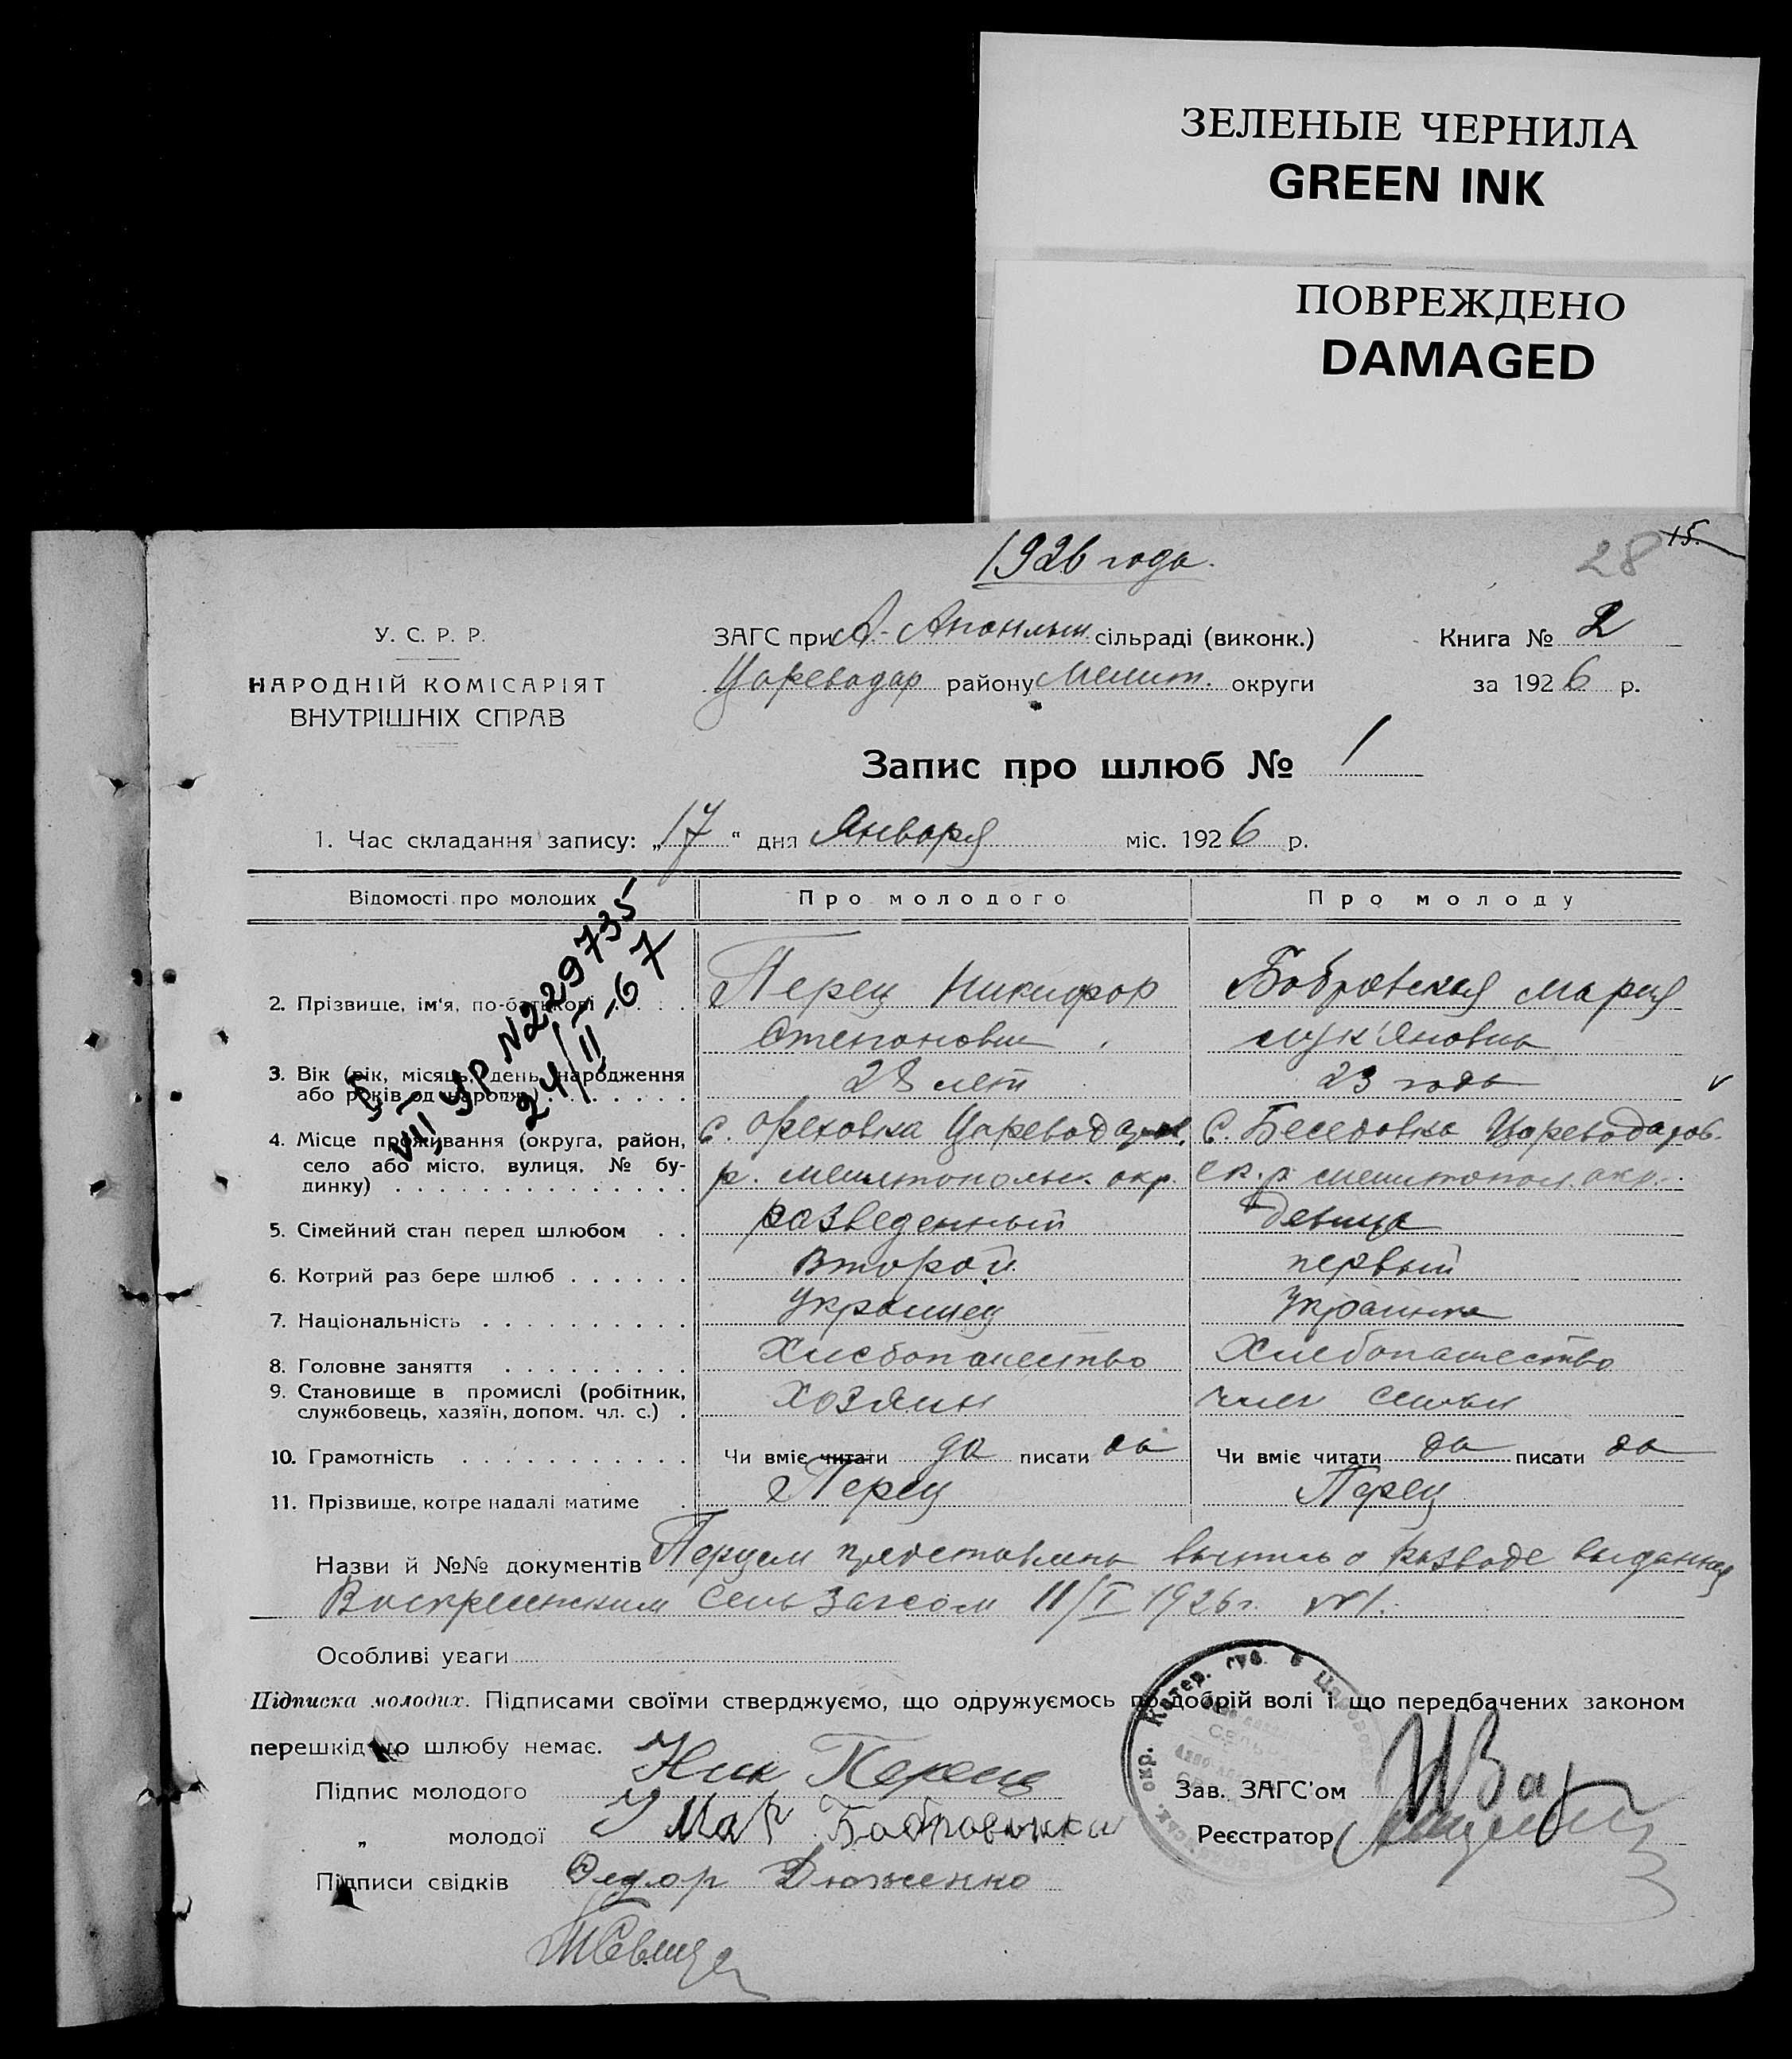 ЗЕЛЕНЫЕ ЧЕРНИЛА
GREEN INK
ПОВРЕЖДЕНО
DAMAGED
1926 года.
28 15.
У. С. Р. Р.
НАРОДНІЙ КОМІСАРІЯТ
ВНУТРІШНІХ СПРАВ
ЗАГС при сільраді (виконк.)
Царевадар району Мелит. округи
Книга № 2
за 1926 р.
Запис про шлюб № 1
1. Час складання запису: „17“ дня Января міс. 1926 р.
Відомості про молодих Про молодого Про молоду
5 VIII УР №229735
24/II-67
2. Прізвище, ім'я, по-батькові Перец Никифор Бобровская Мария
Степанович Лук'яновна
3. Вік (рік, місяць, день народження 28 лет 23 года
або років од народж.)
4. Місце проживання (округа, район, с. Ореховка Царевадаров. с. Беседовка Царевадаров-
село або місто, вулиця, № бу- р. Мелитопольск. окр. ск. р. Мелитопол. окр.
динку)
5. Сімейний стан перед шлюбом разведенный девица
6. Котрий раз бере шлюб второй первый
7. Національність украинец украинка
8. Головне заняття Хлебопашество Хлебопашество
9. Становище в промислі (робітник, хозяин член семьи
службовець, хазяїн, допом. чл. с.)
10. Грамотність Чи вміє читати да писати да Чи вміє читати да писати да
11. Прізвище, котре надалі матиме Перец Перец
Назви й №№ документів Перцем представлена выпись о разводе выданная
Воскресенским Сель Загсом 11/I 1926 г. №1.
Особливі уваги
Підписка молодих. Підписами своїми стверджуємо, що одружуємось по добрій волі і що передбачених законом
перешкід до шлюбу немає.
Підпис молодого Ник Перец
„ молодої Мар Бобровская
Підписи свідків Федор Дюженко
Зав. ЗАГС'ом
Реєстратор